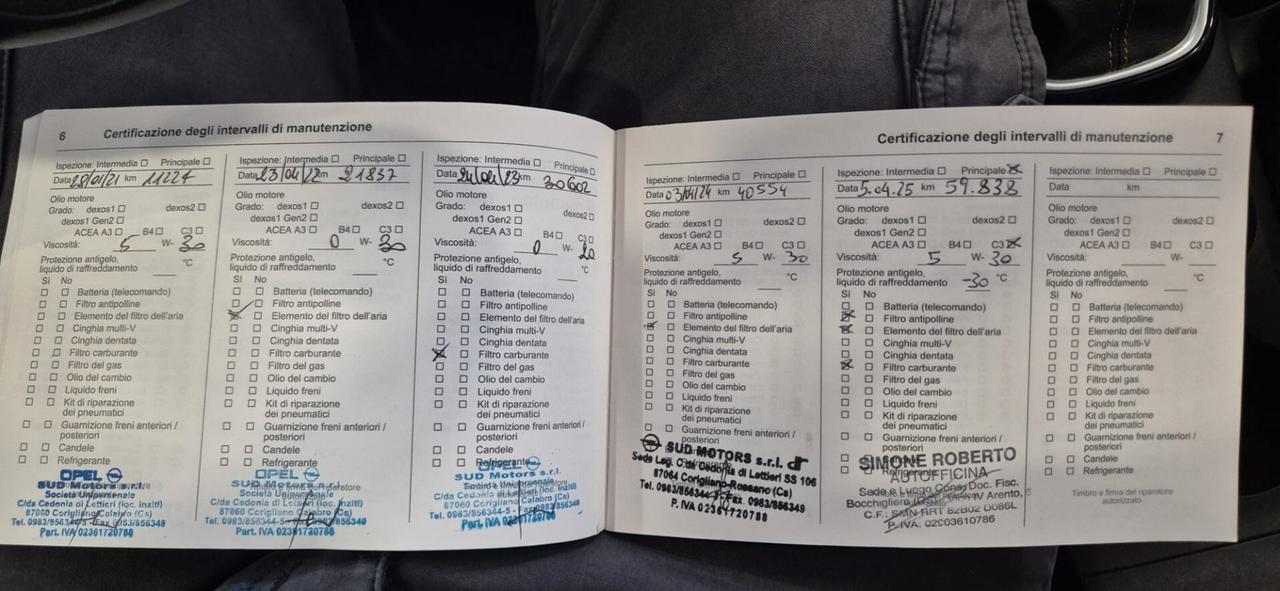 6 Certificazione degli intervalli di manutenzione
Ispezione: Intermedia ☐ Principale ☐
Data 28/01/21 km 11227
Olio motore
Grado: dexos1 ☐ dexos2 ☐
dexos1 Gen2 ☐
ACEA A3 ☐ B4 ☐ C3 ☐
Viscosità: 5 W- 30
Protezione antigelo,
liquido di raffreddamento ____ °C
Sì No
☐ ☐ Batteria (telecomando)
☐ ☐ Filtro antipolline
☐ ☐ Elemento del filtro dell'aria
☐ ☐ Cinghia multi-V
☐ ☐ Cinghia dentata
☐ ☐ Filtro carburante
☐ ☐ Filtro del gas
☐ ☐ Olio del cambio
☐ ☐ Liquido freni
☐ ☐ Kit di riparazione
dei pneumatici
☐ ☐ Guarnizione freni anteriori /
posteriori
☐ ☐ Candele
☐ ☐ Refrigerante
OPEL
SUD Motors s.r.l.
Società Unipersonale
C/da Cedonia di Lettieri (loc. Inziti)
87060 Corigliano Calabro (Cs)
Tel. 0983/856344-5 - Fax 0983/856349
Part. IVA 02361720786
Ispezione: Intermedia ☐ Principale ☐
Data 23/04/22 km 21837
Olio motore
Grado: dexos1 ☐ dexos2 ☐
dexos1 Gen2 ☐
ACEA A3 ☐ B4 ☐ C3 ☐
Viscosità: 0 W- 30
Protezione antigelo,
liquido di raffreddamento ____ °C
Sì No
☐ ☐ Batteria (telecomando)
☐ ☐ Filtro antipolline
☒ ☐ Elemento del filtro dell'aria
☐ ☐ Cinghia multi-V
☐ ☐ Cinghia dentata
☐ ☐ Filtro carburante
☐ ☐ Filtro del gas
☐ ☐ Olio del cambio
☐ ☐ Liquido freni
☐ ☐ Kit di riparazione
dei pneumatici
☐ ☐ Guarnizione freni anteriori /
posteriori
☐ ☐ Candele
☐ ☐ Refrigerante
OPEL
SUD Motors s.r.l.
Società Unipersonale
C/da Cedonia di Lettieri (loc. Inziti)
87060 Corigliano Calabro (Cs)
Tel. 0983/856344-5 - Fax 0983/856349
Part. IVA 02361720786
Ispezione: Intermedia ☐ Principale ☐
Data km 30602
Olio motore
Grado: dexos1 ☐ dexos2 ☐
dexos1 Gen2 ☐
ACEA A3 ☐ B4 ☐ C3 ☐
Viscosità: 0 W- 20
Protezione antigelo,
liquido di raffreddamento ____ °C
Sì No
☐ ☐ Batteria (telecomando)
☐ ☐ Filtro antipolline
☐ ☐ Elemento del filtro dell'aria
☐ ☐ Cinghia multi-V
☐ ☐ Cinghia dentata
☒ ☐ Filtro carburante
☐ ☐ Filtro del gas
☐ ☐ Olio del cambio
☐ ☐ Liquido freni
☐ ☐ Kit di riparazione
dei pneumatici
☐ ☐ Guarnizione freni anteriori /
posteriori
☐ ☐ Candele
☐ ☐ Refrigerante
OPEL
SUD Motors s.r.l.
Società Unipersonale
C/da Cedonia di Lettieri (loc. Inziti)
87060 Corigliano Calabro (Cs)
Tel. 0983/856344-5 - Fax 0983/856349
Part. IVA 02361720786
Certificazione degli intervalli di manutenzione 7
Ispezione: Intermedia ☐ Principale ☐
Data 03/04/24 km 40554
Olio motore
Grado: dexos1 ☐ dexos2 ☐
dexos1 Gen2 ☐
ACEA A3 ☐ B4 ☐ C3 ☐
Viscosità: 5 W- 30
Protezione antigelo,
liquido di raffreddamento ____ °C
Sì No
☐ ☐ Batteria (telecomando)
☐ ☐ Filtro antipolline
☒ ☐ Elemento del filtro dell'aria
☐ ☐ Cinghia multi-V
☐ ☐ Cinghia dentata
☐ ☐ Filtro carburante
☐ ☐ Filtro del gas
☐ ☐ Olio del cambio
☐ ☐ Liquido freni
☐ ☐ Kit di riparazione
dei pneumatici
☐ ☐ Guarnizione freni anteriori /
posteriori
SUD MOTORS s.r.l.
Sede Leg. C/da Cedonia di Lettieri SS 106
87064 Corigliano-Rossano (Cs)
Tel. 0983/856344-5 Fax 0983/856349
P. IVA 02361720786
Ispezione: Intermedia ☐ Principale ☒
Data 5.04.25 km 59.838
Olio motore
Grado: dexos1 ☐ dexos2 ☐
dexos1 Gen2 ☐
ACEA A3 ☐ B4 ☐ C3 ☒
Viscosità: 5 W- 30
Protezione antigelo,
liquido di raffreddamento -30 °C
Sì No
☐ ☐ Batteria (telecomando)
☒ ☐ Filtro antipolline
☒ ☐ Elemento del filtro dell'aria
☐ ☐ Cinghia multi-V
☐ ☐ Cinghia dentata
☒ ☐ Filtro carburante
☐ ☐ Filtro del gas
☐ ☐ Olio del cambio
☐ ☐ Liquido freni
☐ ☐ Kit di riparazione
dei pneumatici
☐ ☐ Guarnizione freni anteriori /
posteriori
☐ ☐ Candele
☐ ☐ Refrigerante
SIMONE ROBERTO
AUTOFFICINA
Sede e Luogo Cons. Doc. Fisc.
Bocchigliero IV Arento,
C.F.: SMN RRT 82B02 D086L
P. IVA: 02003610786
Ispezione: Intermedia ☐ Principale ☐
Data km
Olio motore
Grado: dexos1 ☐ dexos2 ☐
dexos1 Gen2 ☐
ACEA A3 ☐ B4 ☐ C3 ☐
Viscosità: ____ W- ____
Protezione antigelo,
liquido di raffreddamento ____ °C
Sì No
☐ ☐ Batteria (telecomando)
☐ ☐ Filtro antipolline
☐ ☐ Elemento del filtro dell'aria
☐ ☐ Cinghia multi-V
☐ ☐ Cinghia dentata
☐ ☐ Filtro carburante
☐ ☐ Filtro del gas
☐ ☐ Olio del cambio
☐ ☐ Liquido freni
☐ ☐ Kit di riparazione
dei pneumatici
☐ ☐ Guarnizione freni anteriori /
posteriori
☐ ☐ Candele
☐ ☐ Refrigerante
Timbro e firma del riparatore
autorizzato